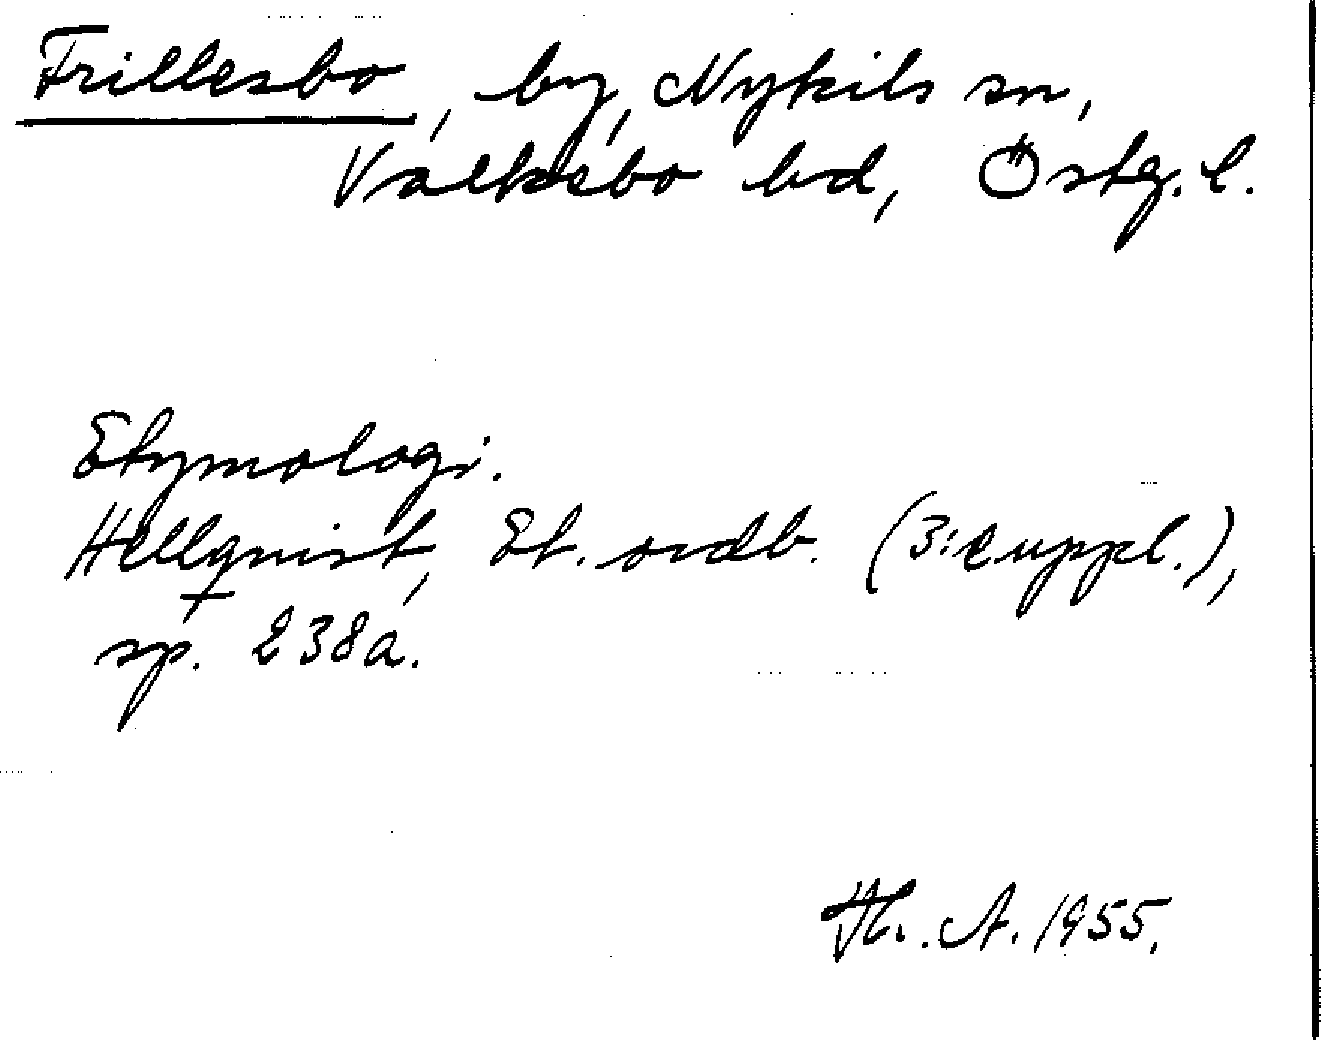 Frillesbo, by, Nykils sn,
Valkebo hd, Östg. l.
Etymologi.
Hellquist, Et. ordb. (3:e uppl.),
sp. 238a.
Th. A. 1955.